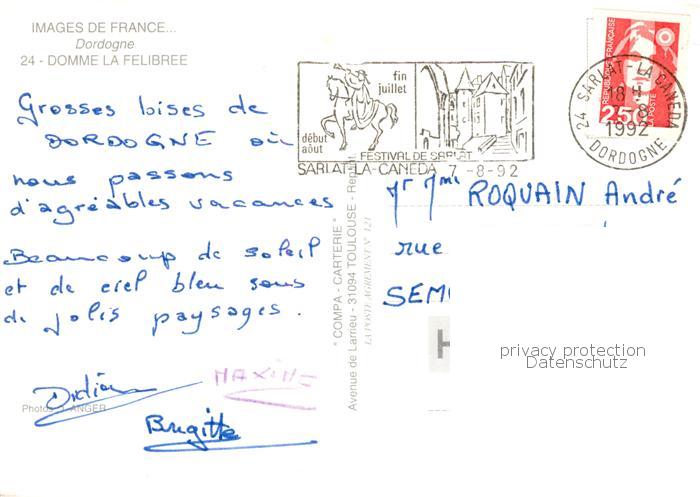 IMAGES DE FRANCE...
Dordogne
24 - DOMME LA FELIBREE
Grosses bises de
DORDOGNE où
nous passons
d'agréables vacances
Beaucoup de soleil
et de ciel bleu sous
de jolis paysages.
Didier
MAXIME
Photos J. ANGER
Brigitte
fin
juillet
début
août
FESTIVAL DE SARLAT
SARLAT-LA-CANEDA 7-8-92
REPUBLIQUE FRANÇAISE
2,50
LA POSTE
24 SARLAT-LA CANEDA
18 H
7-8
1992
DORDOGNE
" COMPA - CARTERIE "
Avenue de Larrieu - 31094 TOULOUSE -
LA POSTE AGREMENT N° 121
Mr Mme ROQUAIN André
rue
SEM
H
privacy protection
Datenschutz